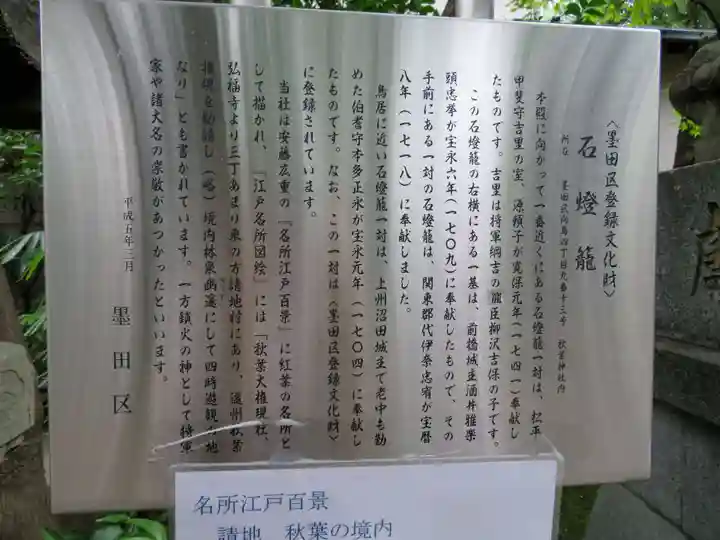 〈墨田区登録文化財〉
石燈籠
所在 墨田区向島四丁目九番十三号 秋葉神社内
本殿に向かって一番近くにある石燈籠一対は、松平
甲斐守吉里の室、源頼子が寛保元年(一七四一)奉献し
たものです。吉里は将軍綱吉の寵臣柳沢吉保の子です。
この石燈籠の右横にある一基は、前橋城主酒井雅楽
頭忠挙が宝永六年(一七〇九)に奉献したもので、その
手前にある一対の石燈籠は、関東郡代伊奈忠宥が宝暦
八年(一七一八)に奉献しました。
鳥居に近い石燈籠一対は、上州沼田城主で老中も勤
めた伯耆守本多正永が宝永元年(一七〇四)に奉献し
たものです。なお、この一対は〈墨田区登録文化財〉
に登録されています。
当社は安藤広重の『名所江戸百景』に紅葉の名所と
して描かれ、『江戸名所図絵』には「秋葉大権現社、
弘福寺より三丁あまり東の方請地村にあり、遠州秋葉
権現を勧請し(略)境内林泉幽邃にして四時遊観の地
なり」とも書かれています。一方鎮火の神として将軍
家や諸大名の崇敬があつかったといいます。
平成五年三月
墨田区
名所江戸百景
請地 秋葉の境内